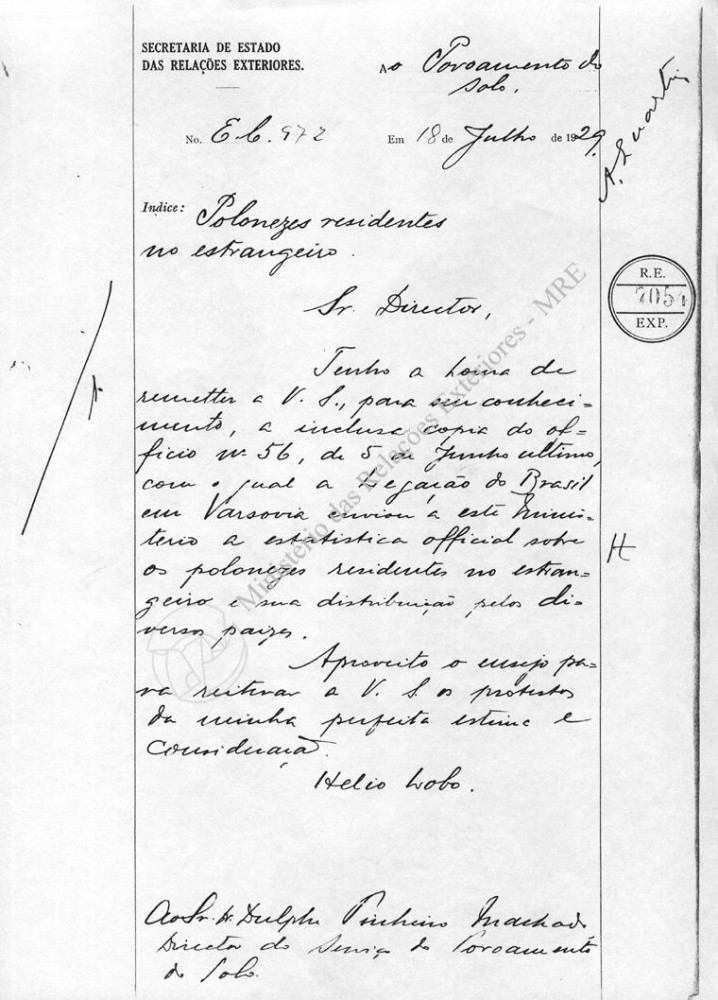 SECRETARIA DE ESTADO
DAS RELAÇÕES EXTERIORES.
Ao Povoamento do
Solo.
No. E.C. 972 Em 18 de Julho de 1929.
Indice: Polonezes residentes
no estrangeiro.
R.E.
EXP.
Sr. Director,
Tenho a honra de
remetter a V. S., para seu conheci=
mento, a inclusa copia do of=
ficio nº 56, de 5 de Junho ultimo,
com o qual a Legação do Brasil
em Varsovia enviou a este Minis=
terio a estatistica official sobre
os polonezes residentes no estran=
geiro e sua distribuição pelos di=
versos paizes.
H
Aproveito o ensejo pa=
ra reiterar a V. S. os protestos
da minha perfeita estima e
consideração.
Helio Lobo.
Ao Sr. Dr. Dulphe Pinheiro Machado
Director do Serviço do Povoamento
do Solo.
Ministério das Relações Exteriores - MRE